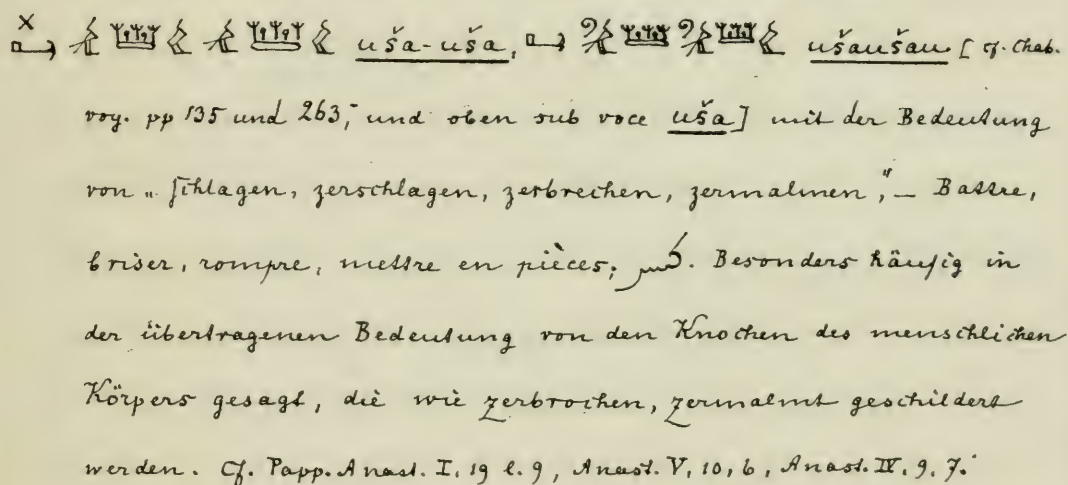 × uša-uša, ušaušau [cf. Chab.
voy. pp 135 und 263, und oben sub voce uša] mit der Bedeutung
von „schlagen, zerschlagen, zerbrechen, zermalmen", – Battre,
briser, rompre, mettre en pièces; كسر. Besonders häufig in
der übertragenen Bedeutung von den Knochen des menschlichen
Körpers gesagt, die wie zerbrochen, zermalmt geschildert
werden. Cf. Papp. Anast. I, 19 l. 9, Anast. V, 10, 6, Anast. IV, 9, 7.